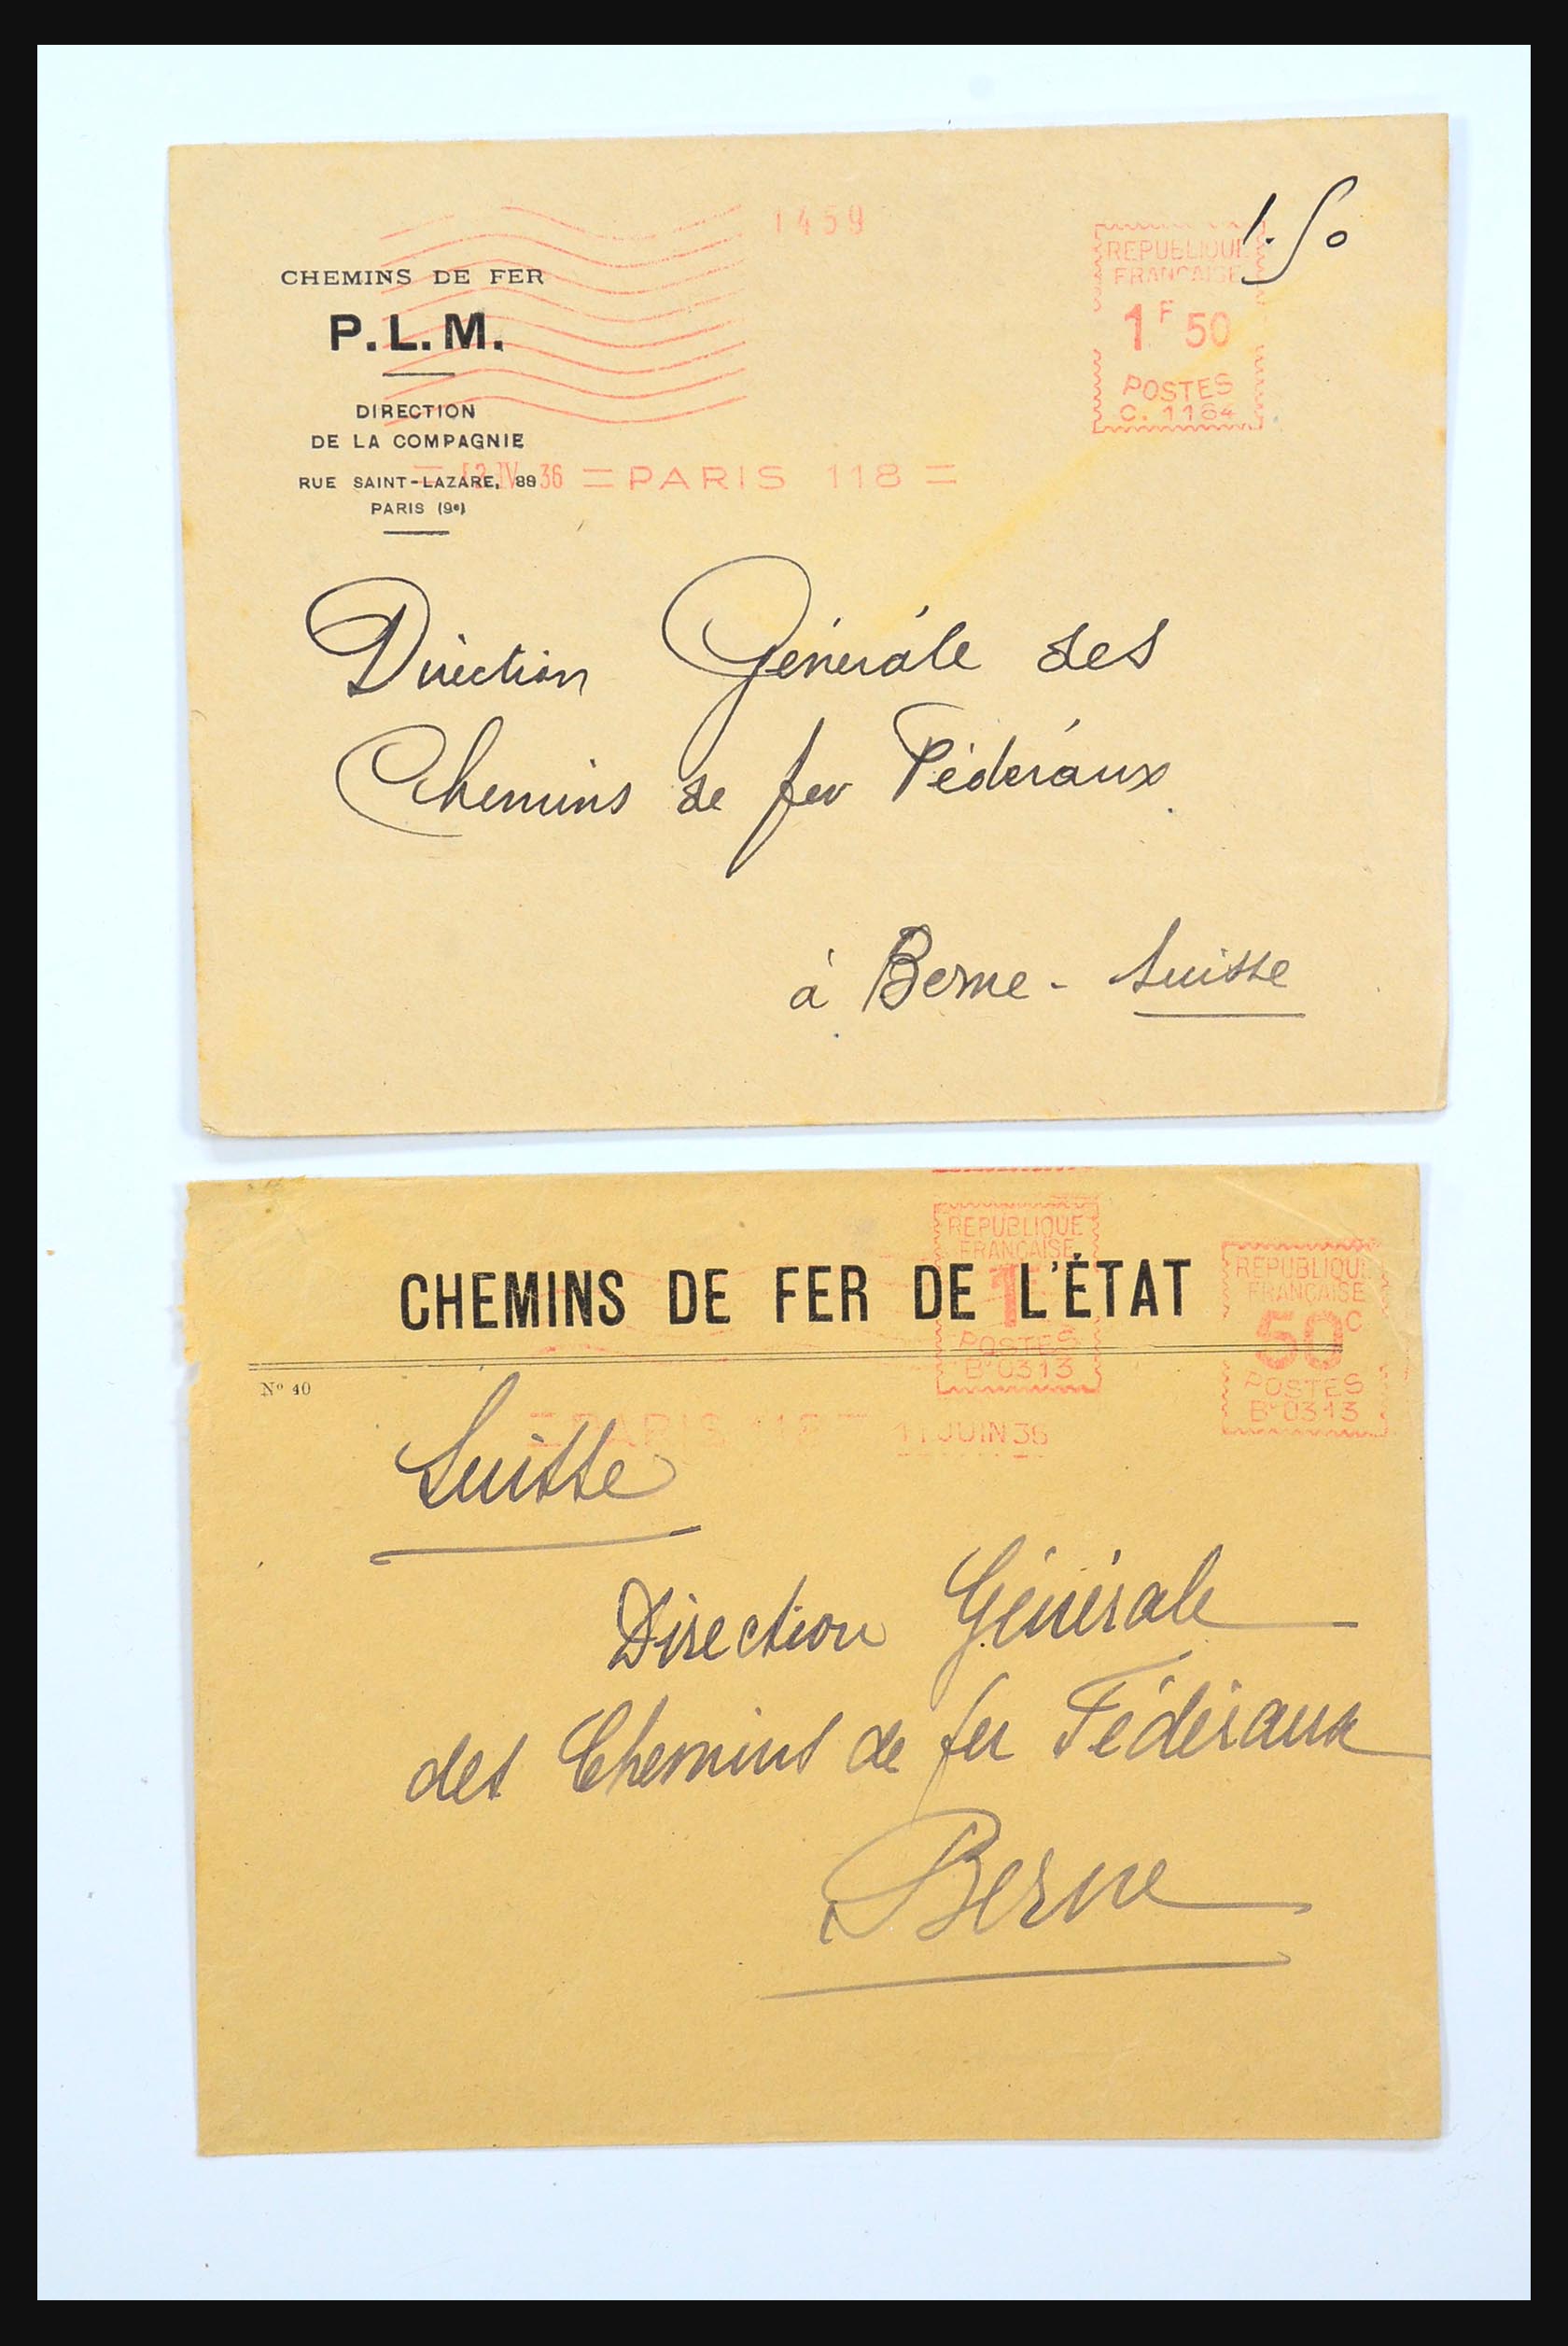 1459
1.50
REPUBLIQUE
FRANCAISE
1F 50
POSTES
C. 1164
CHEMINS DE FER
P.L.M.
DIRECTION
DE LA COMPAGNIE
RUE SAINT-LAZARE, 88
PARIS (9e)
IV 36 = PARIS 118 =
Direction Générale des
Chemins de fer Fédéraux
à Berne - Suisse
REPUBLIQUE
FRANÇAISE
1F
POSTES
B 0313
REPUBLIQUE
FRANÇAISE
50c
POSTES
B 0313
CHEMINS DE FER DE L'ÉTAT
No 40
= PARIS 118 = 11 JUIN 36
Suisse
Direction Générale
des Chemins de fer Fédéraux
Berne